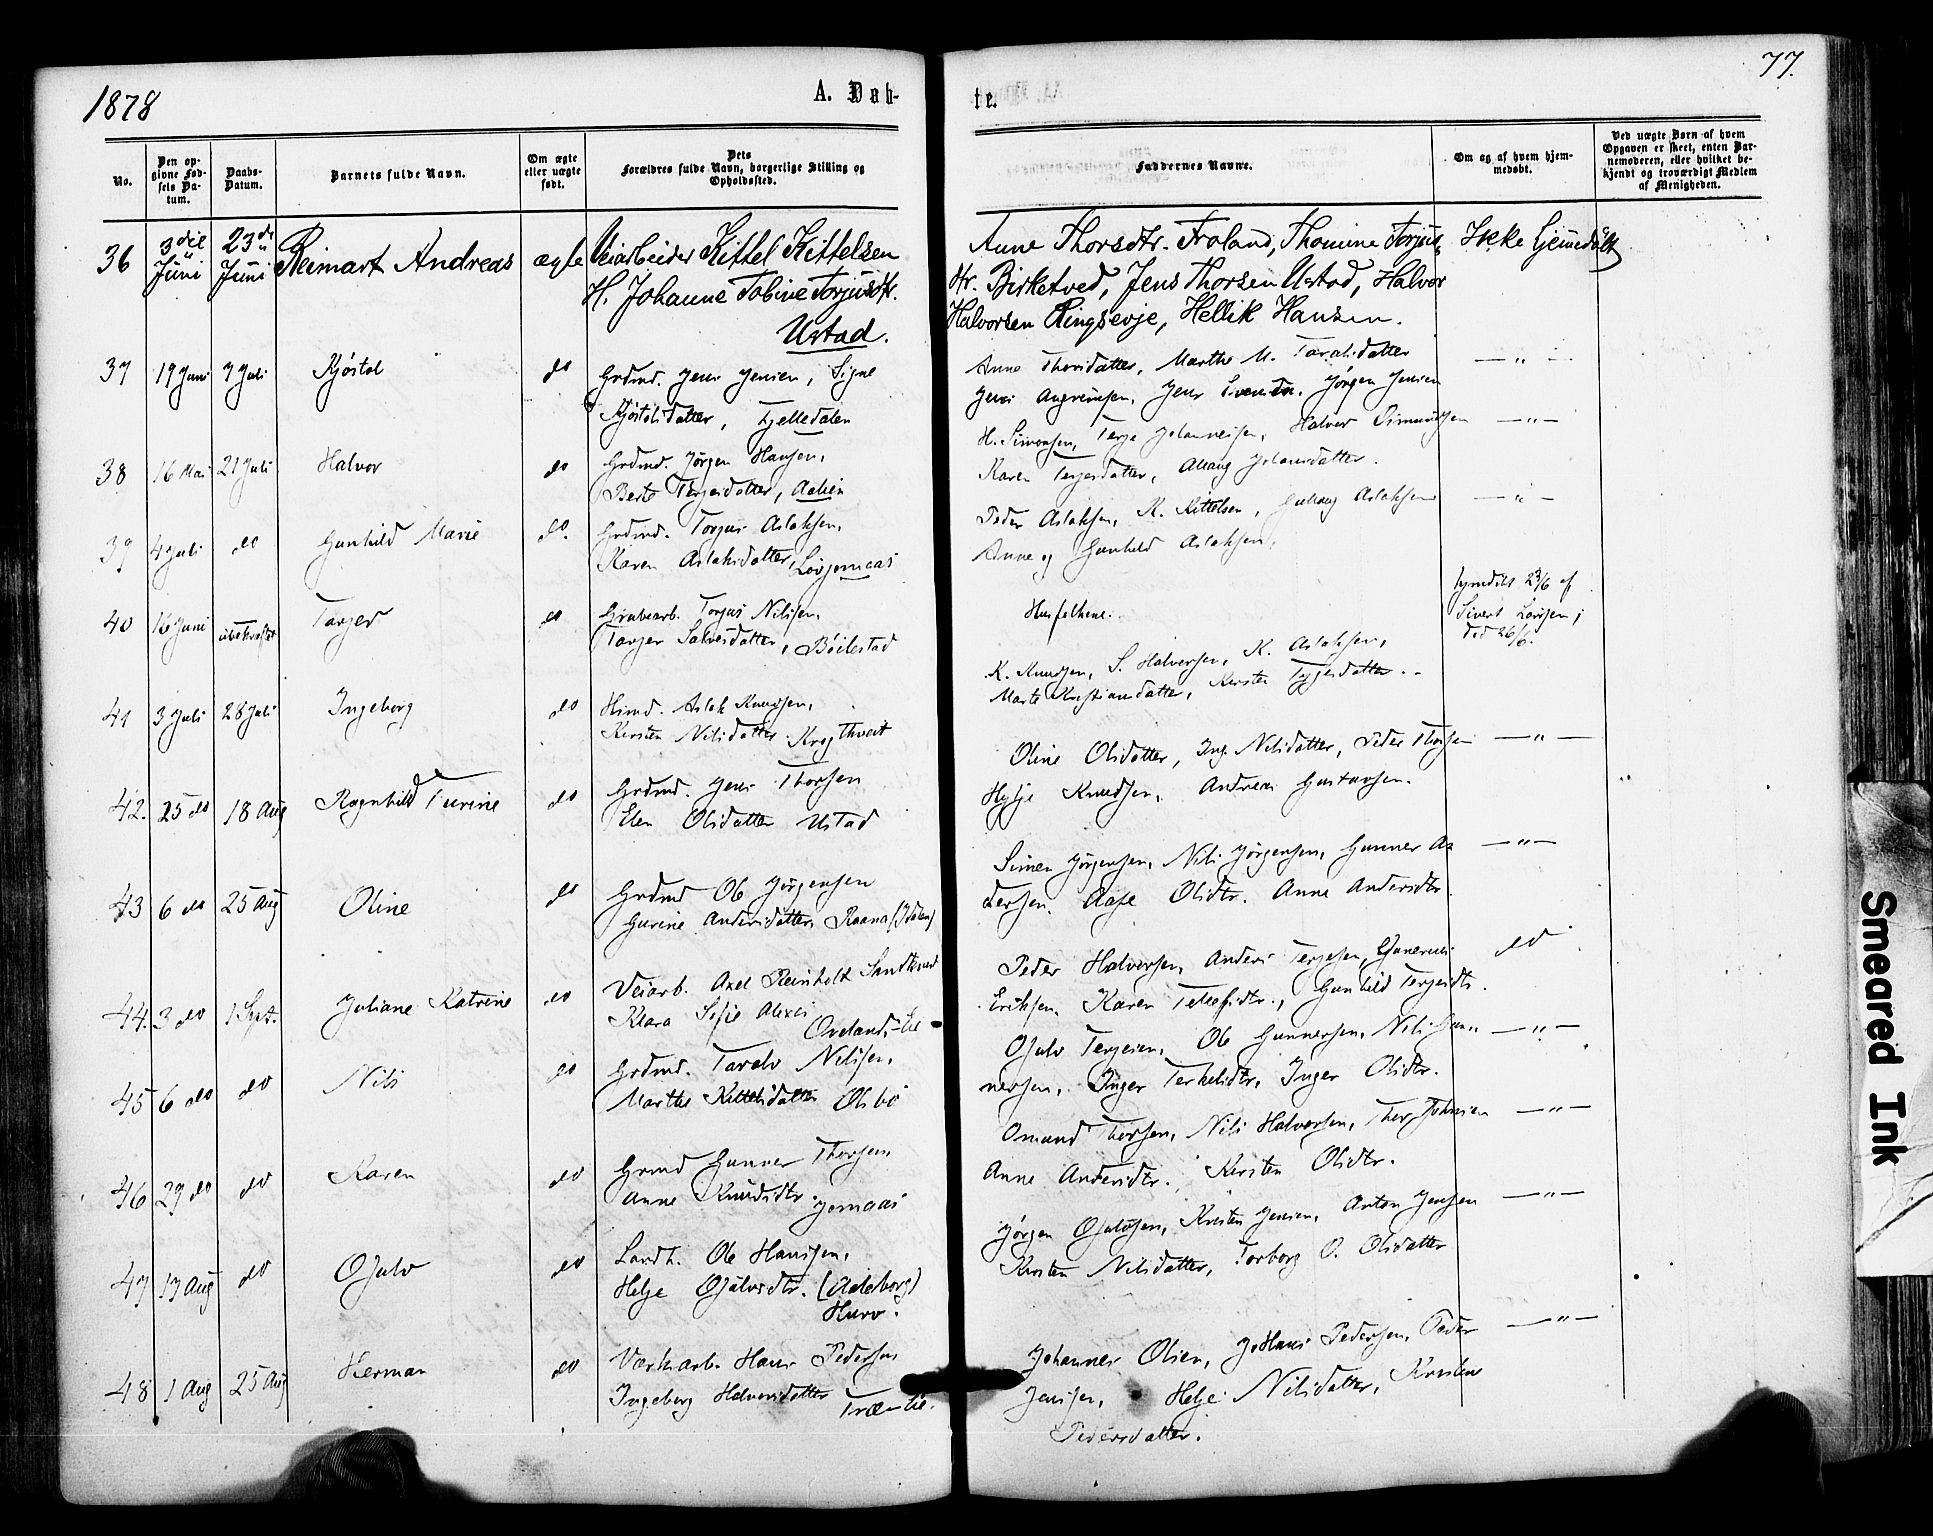 1878
A. Dab-
te.
77.
No.
Den op-
givne Fød-
sels Da-
tum.
Daabs-
Datum.
Barnets fulde Navn.
Om ægte
eller uægte
født.
Dets
Forældres fulde Navn, borgerlige Stilling og
Opholdssted.
Faddernes Navne.
Om og af hvem hjem-
medøbt.
Ved uægte Børn af hvem
Opgaven er skeet, enten Bar-
nemoderen, eller hvilket be-
kjendt og troværdigt Medlem
af Menigheden.
36 3die Juni 23de Juni Reimart Andreas ægte Veiarbeider Kittel Kittelsen
H. Johanne Tobine Torjusdtr.
Ustad.
Anne Thorsdtr. Froland, Thomine Torjus-
dtr. Birketved, Jens Thorsen Ustad, Halvor
Halvorsen Ringsevje, Hellik Hansen.
Ikke hjemmedøbt
37 19 Juni 7 Juli Kjøstol do Grdmd. Jens Jensen, Signe
Kjøstolsdatter, Fjelledalen
Anne Thorsdatter, Marthe M. Taralsdatter
Jens Jens Svendsen, Jørgen Jensen
— " —
38 16 Mai 21 Juli Halvor do Grdmd. Jørgen Hansen,
Berte Terjesdatter,
H. Simonsen, Terje Johannesen, Halvor
Karen Terjesdatter,
— " —
39 4 Juli do Gunhild Marie do. Grdmd. Torjus Aslaksen,
Karen Aslaksdatter, Løvjomaas
Peder Aslaksen, K. Kittelsen, Aslaksen
Anne og Gunhild Aslaksen,
— " —
40 16 Juni ubekræftet Torjer do Grubearb. Torjus Nilsen,
Torjer Salvesdatter, Bøilestad
Husfolkene.
hjemdøbt 23/6 af
Sivert Larsen;
død 26/6.
41 3 Juli 28 Juli Ingeborg do Husmd. Aslak Knudsen,
Kirsten Nilsdatter Krogthveit
K. Knudsen, S. Halvorsen, K. Aslaksen,
Marte Kristiansdatter, Kirsten Terjesdatter.
42. 25 do 18 Aug Ragnhild Turine do Grdmd. Jens Thorsen
Elen Olsdatter Ustad
Oline Olsdatter, Ing. Nilsdatter, Peder Thorsen
Helje Knudsen, Andreas Gustavsen.
— " —
43 6 do 25 Aug Oline do Grdmd Ole Jørgensen
Gurine Andersdatter Raana (Idalen)
Simon Jørgensen, Nils Jørgensen, Gunner An-
dersen. Aase Olsdtr. Anne Andersdtr.
— " —
44. 3 do 1 Spt. Juliane Katrine do Veiarb. Axel Reinholt Sandkvist
Klara Sofie Alexis
Oveland,
Peder Halvorsen, Anders Terjesen, Gunerius
Eriksen. Karen Tellefsdtr., Gunhild Terjesdtr.
do
45 6 do do Nils do Grdmd. Tarald Nilsen,
Marthe Kittelsdatter Olsbo
Ojulv Terjesen, Ole Gunnersen, Nils Gun-
nersen, Inger Terkelsdtr. Inger Olsdtr.
— " —
46 29 do do Karen do Grmd Gunner Thorsen
Anne Knudsdtr. Jomaas
Omund Thorsen, Nils Halvorsen, Thor Johnsen
Anne Andersdtr. Kirsten Olsdtr.
— " —
47 17 Aug do Ojulv do Landh. Ole Hansen,
Helje Ojulvsdtr. (Aaleborg)
Hurv.
Jørgen Ojulvsen, Kristen Jensen, Anton Jensen
Kirsten Nilsdatter, Torborg O. Olsdatter
— " —
48 1 Aug 25 Aug Herman do Værksarb. Hans Pedersen
Ingeborg Halvorsdatter
Johannes Olsen, Johans Pedersen, Peder
Jensen, Helje Nilsdatter, Kirsten
Pedersdatter.
— " —
Smeared Ink